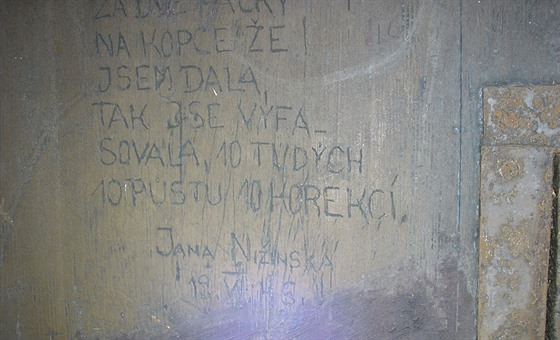 ZA DVĚ FACKY
NA KOPCE ŽE!
JSEM DALA,
TAK JSE VYFA-
SOVALA, 10 TVDÝCH
10 PUSTU 10 KOREKCÍ.
JANA NIŽINSKÁ